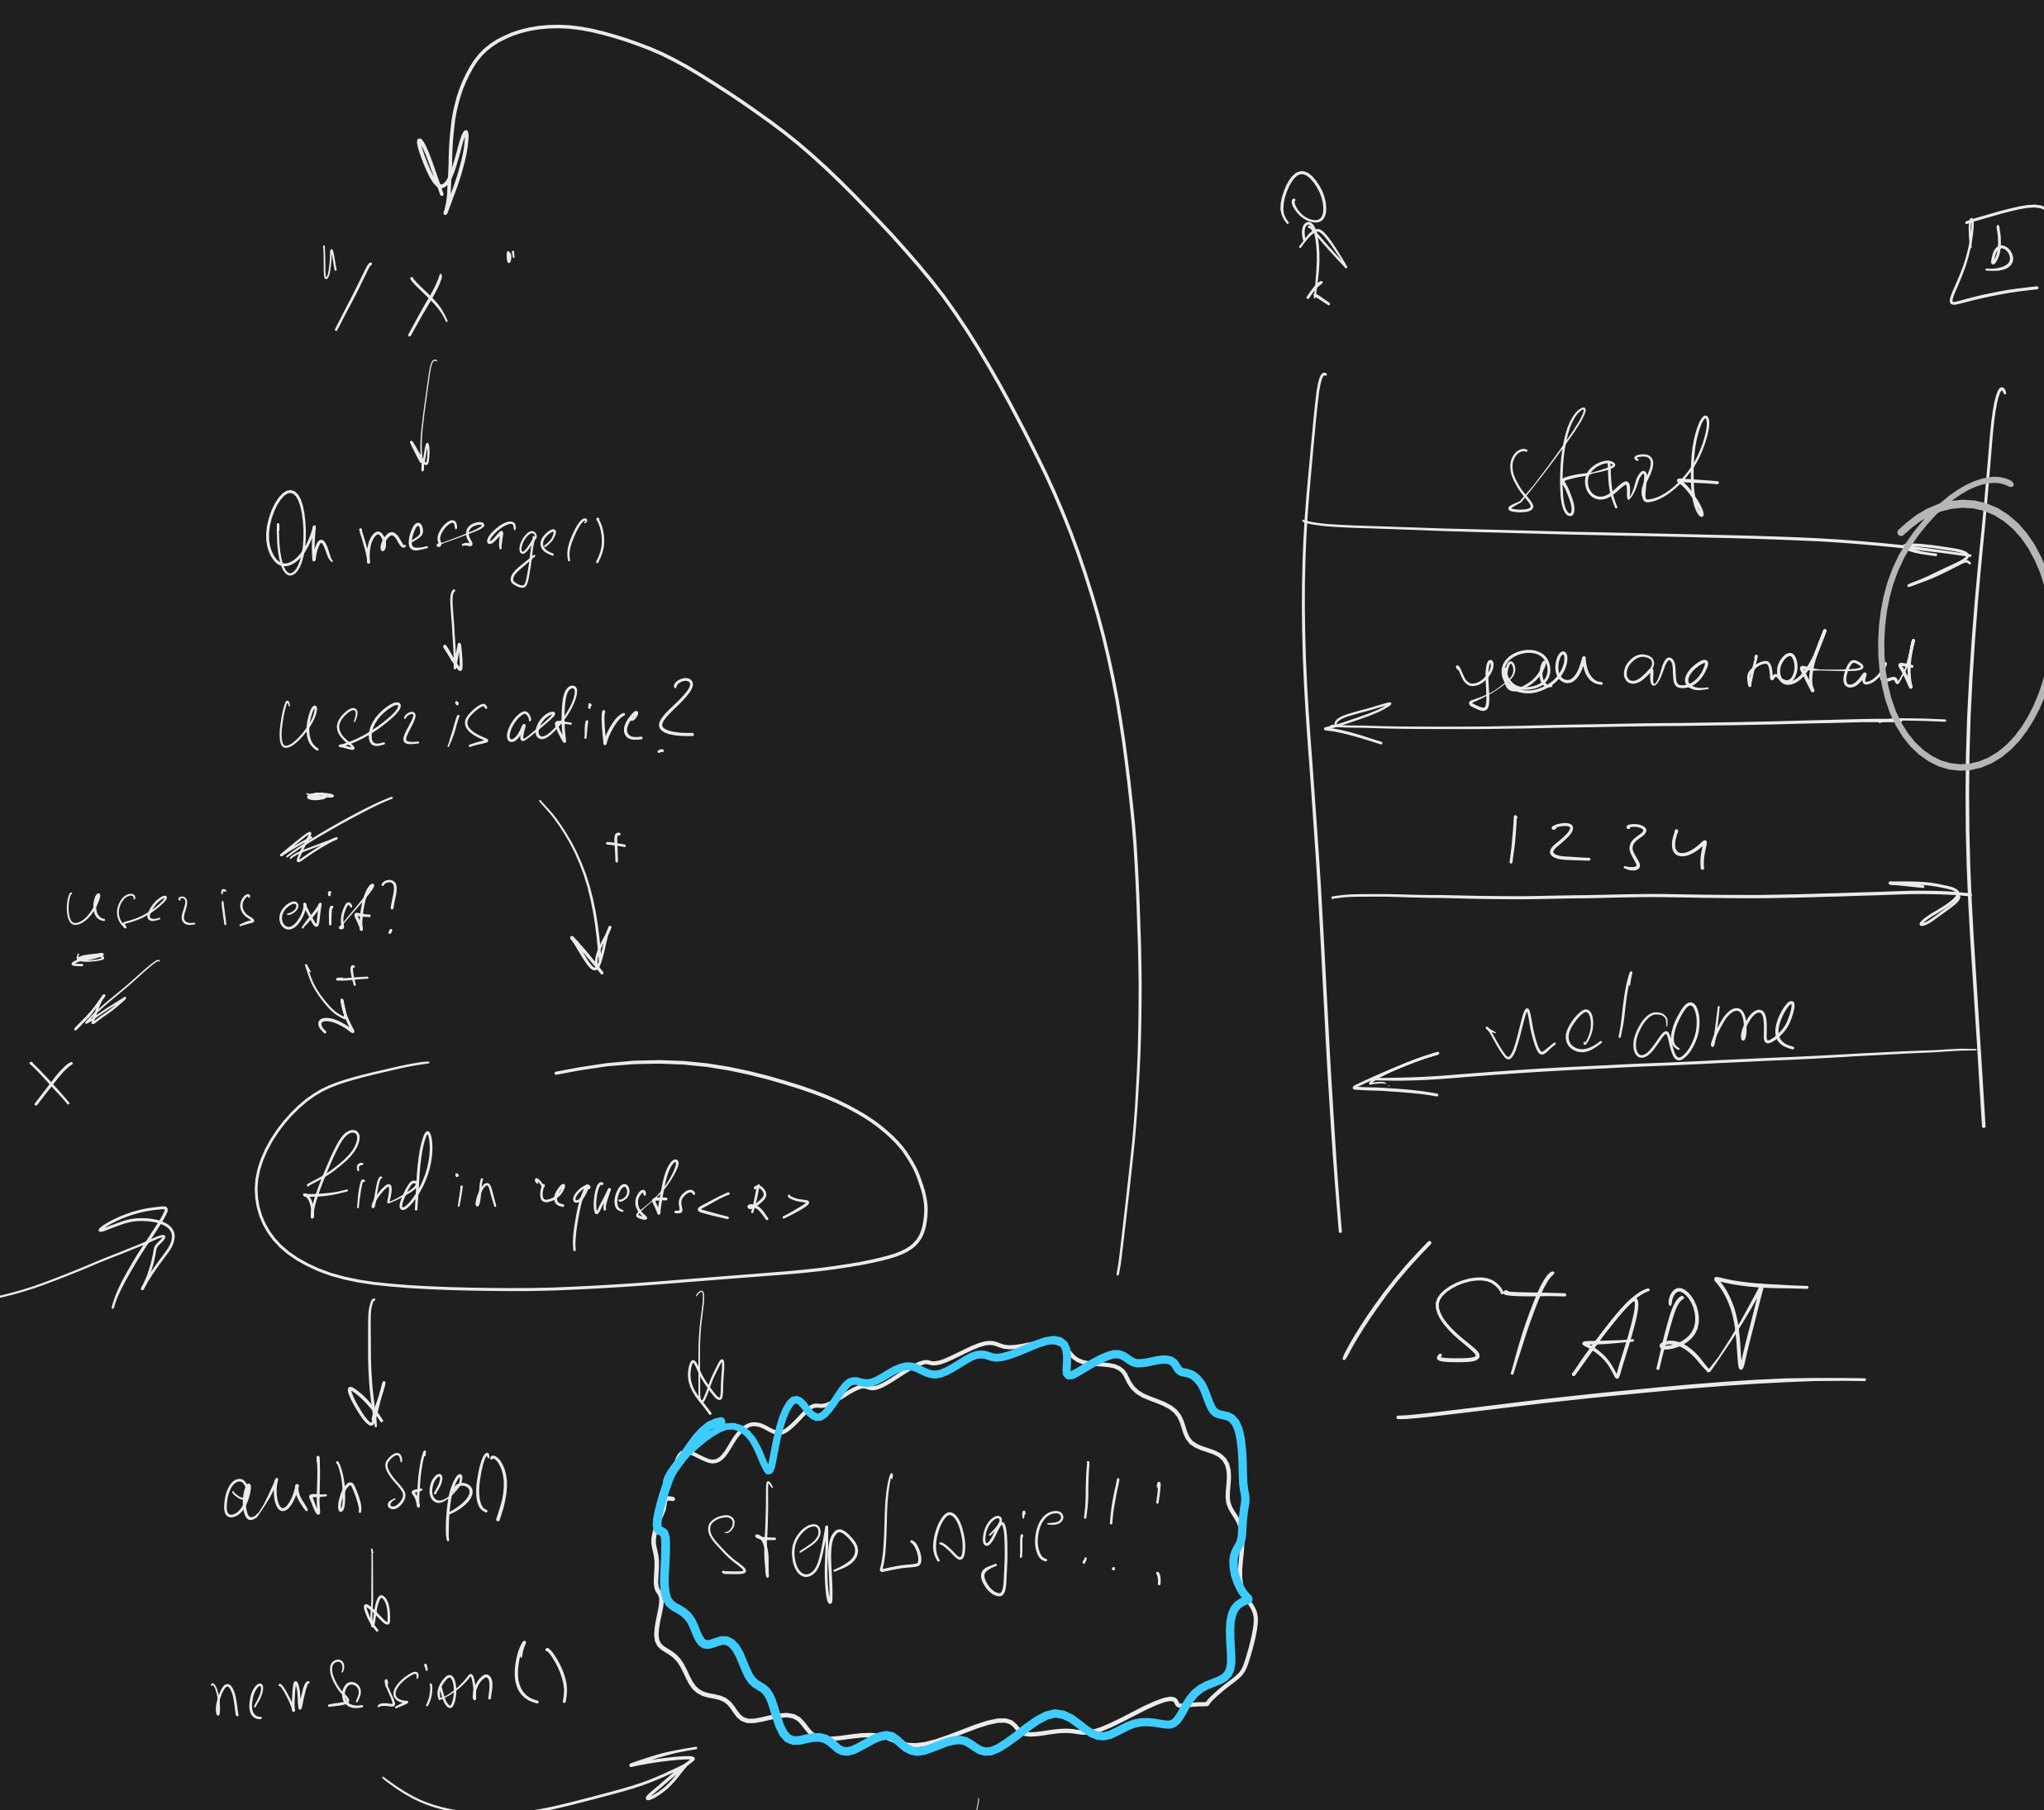 "/ x "
On message()
user is active?
-
+
user is exist?
-
+
X
find in users < >
auth Step()
newSession()
StepLogic!! :
B
start
you are not
1 2 3 4
welcome
/START